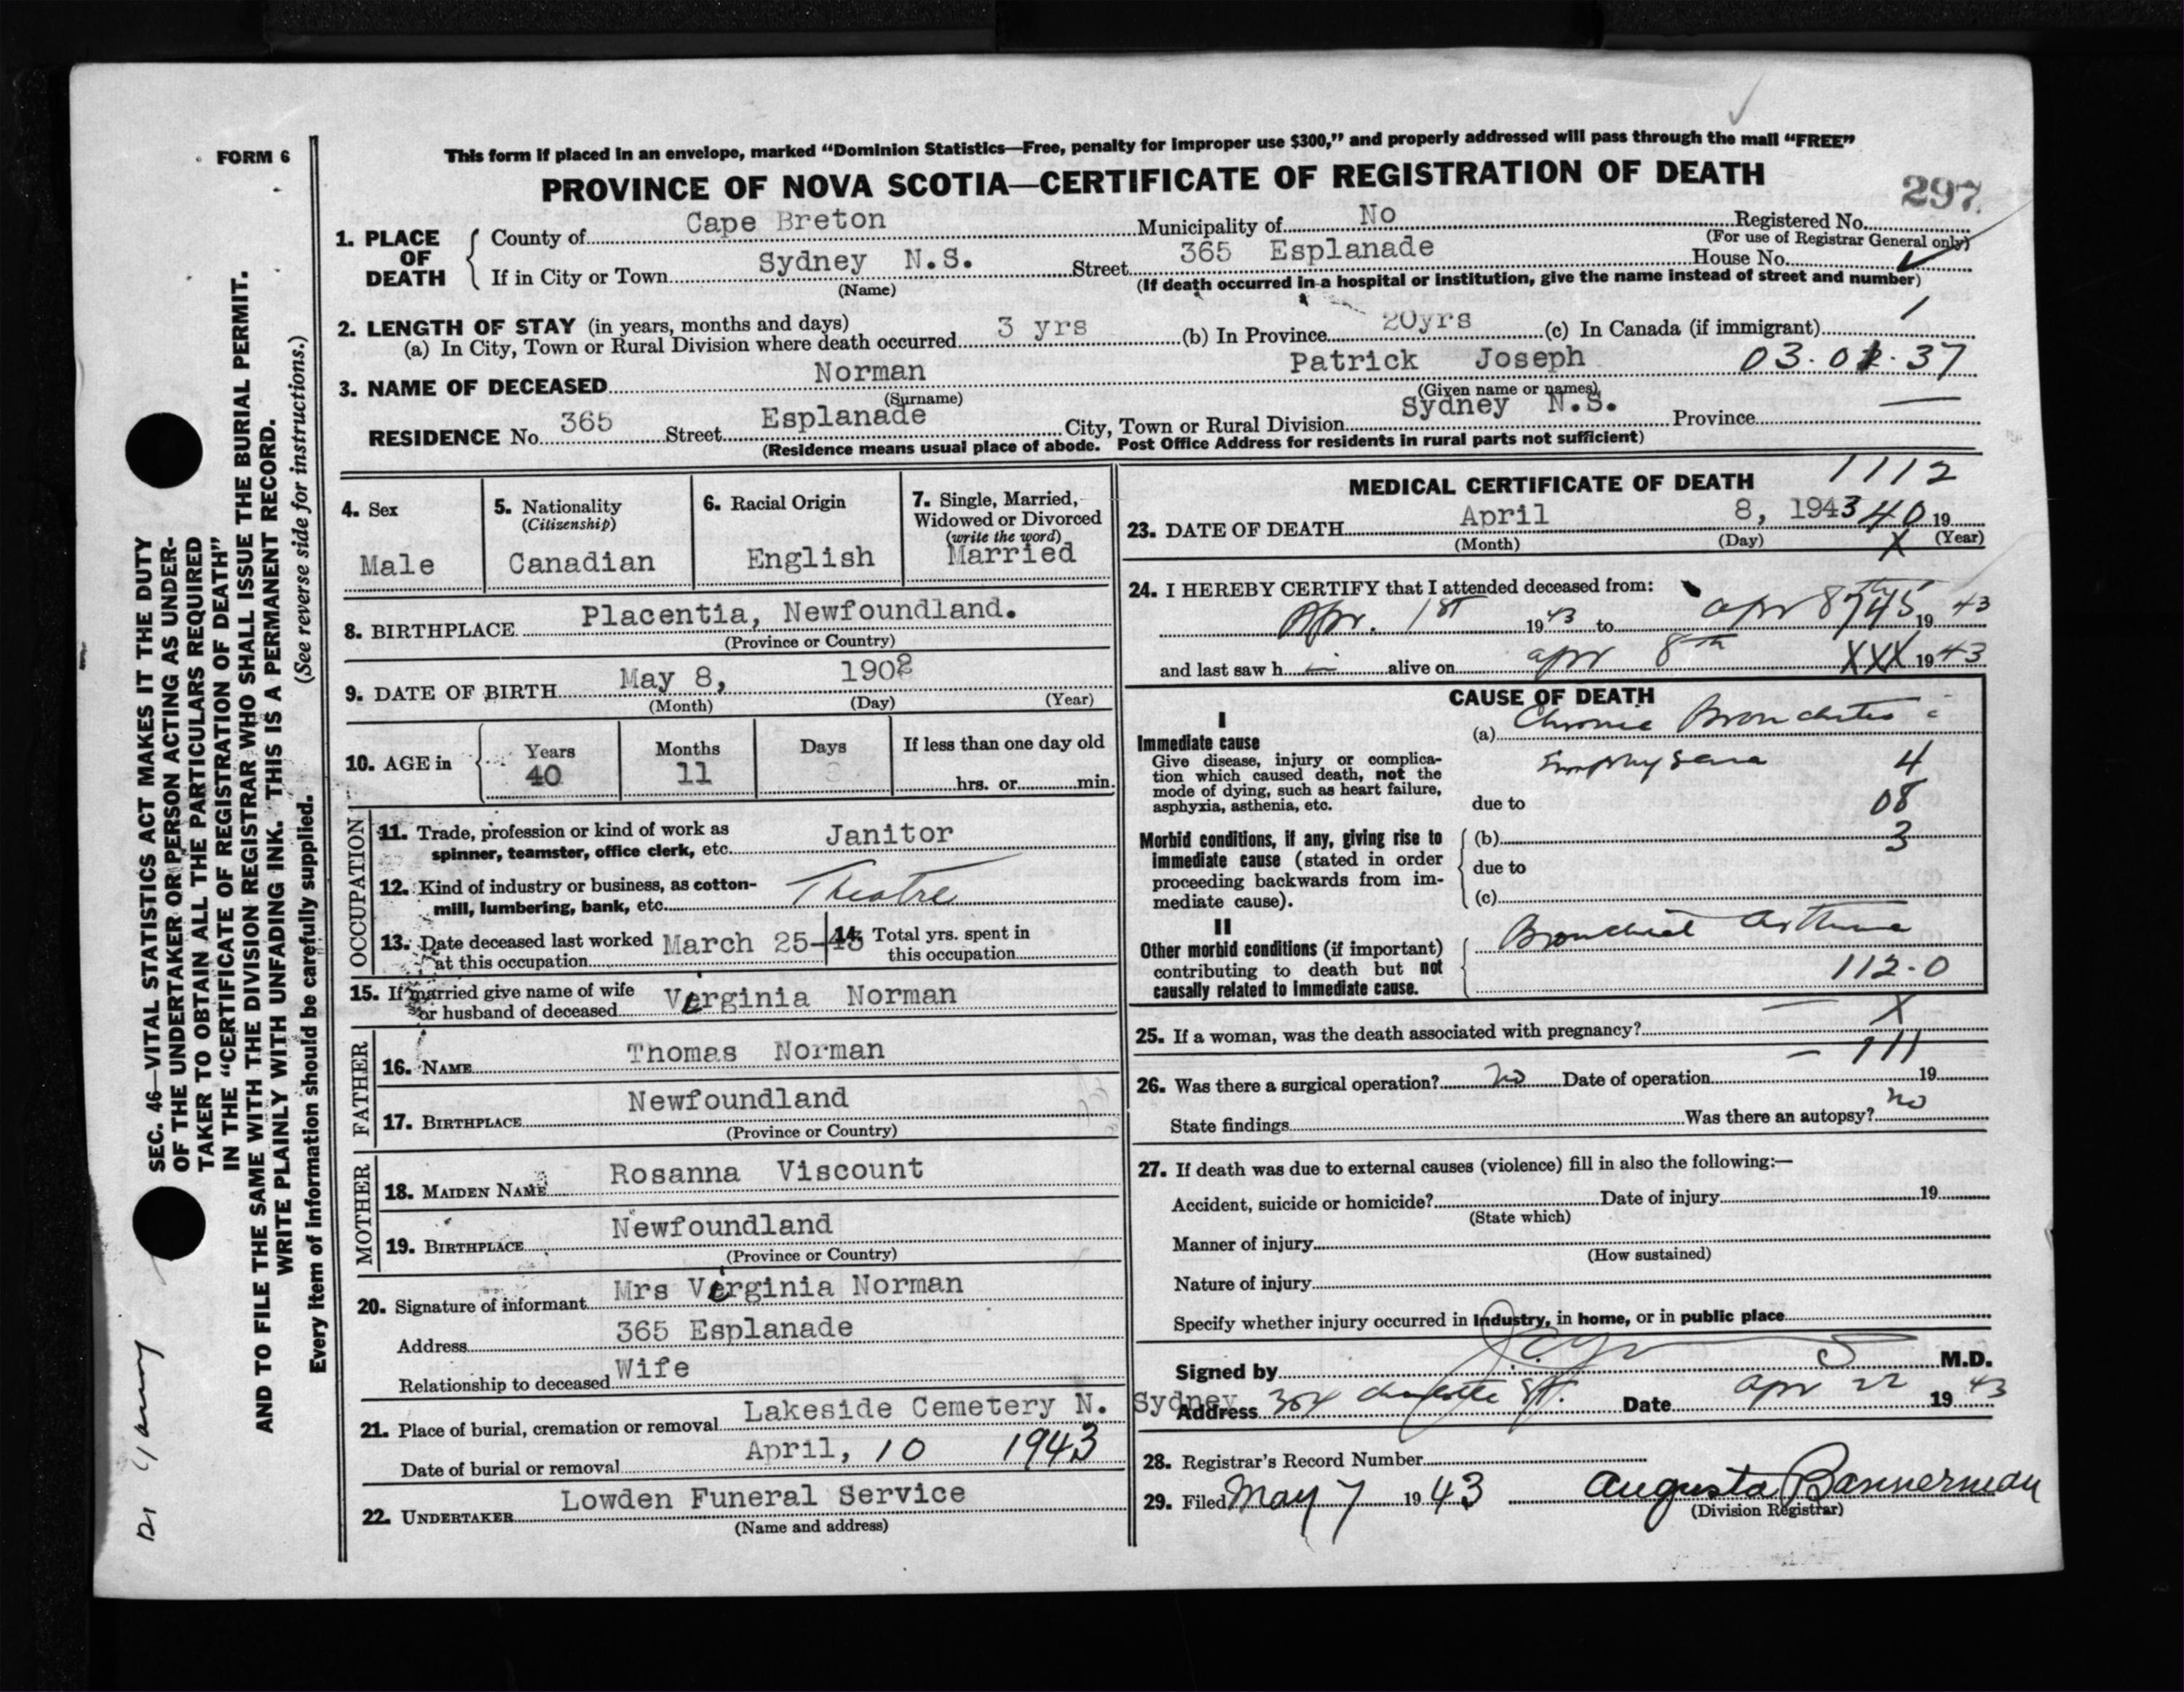 This form if placed in an envelope, marked “Dominion Statistics—Free, penalty for improper use $300,” and properly addressed will pass through the mail “FREE”
FORM 6
PROVINCE OF NOVA SCOTIA—CERTIFICATE OF REGISTRATION OF DEATH
297
1. PLACE OF DEATH
County of Cape Breton Municipality of No Registered No.
(For use of Registrar General only)
If in City or Town Sydney N.S. Street 365 Esplanade House No.
(Name) (If death occurred in a hospital or institution, give the name instead of street and number)
2. LENGTH OF STAY (in years, months and days)
(a) In City, Town or Rural Division where death occurred 3 yrs (b) In Province 20yrs (c) In Canada (if immigrant)
3. NAME OF DECEASED Norman Patrick Joseph
(Surname) (Given name or names)
RESIDENCE No. 365 Street Esplanade City, Town or Rural Division Sydney N.S. Province
(Residence means usual place of abode. Post Office Address for residents in rural parts not sufficient)
4. Sex
Male
5. Nationality
(Citizenship)
Canadian
6. Racial Origin
English
7. Single, Married,
Widowed or Divorced
(write the word)
Married
8. BIRTHPLACE Placentia, Newfoundland.
(Province or Country)
9. DATE OF BIRTH May 8, 1902
(Month) (Day) (Year)
10. AGE in
Years Months Days If less than one day old
40 11 hrs. or min.
OCCUPATION
11. Trade, profession or kind of work as
spinner, teamster, office clerk, etc. Janitor
12. Kind of industry or business, as cotton-
mill, lumbering, bank, etc. Theatre
13. Date deceased last worked
at this occupation March 25-43
14. Total yrs. spent in
this occupation
15. If married give name of wife
or husband of deceased Virginia Norman
FATHER
16. NAME Thomas Norman
17. BIRTHPLACE Newfoundland
(Province or Country)
MOTHER
18. MAIDEN NAME Rosanna Viscount
19. BIRTHPLACE Newfoundland
(Province or Country)
20. Signature of informant Mrs Virginia Norman
Address 365 Esplanade
Relationship to deceased Wife
21. Place of burial, cremation or removal Lakeside Cemetery N. Sydney
Date of burial or removal April, 10 1943
22. UNDERTAKER Lowden Funeral Service
(Name and address)
MEDICAL CERTIFICATE OF DEATH 1112
23. DATE OF DEATH April 8, 1943 40 19
(Month) (Day) X (Year)
24. I HEREBY CERTIFY that I attended deceased from:
Apr. 1st 1943 to apr 8th 745 1943
and last saw h alive on apr 8th XXX 1943
CAUSE OF DEATH
I
Immediate cause
Give disease, injury or complica-
tion which caused death, not the
mode of dying, such as heart failure,
asphyxia, asthenia, etc.
(a) Chronic Bronchitis c
Emphysema 4
due to 08
Morbid conditions, if any, giving rise to
immediate cause (stated in order
proceeding backwards from im-
mediate cause).
(b) 3
due to
(c)
II
Other morbid conditions (if important)
contributing to death but not
causally related to immediate cause.
Bronchial Asthma
112.0
X
25. If a woman, was the death associated with pregnancy?
111
26. Was there a surgical operation? no Date of operation 19
State findings Was there an autopsy? no
27. If death was due to external causes (violence) fill in also the following:—
Accident, suicide or homicide? Date of injury 19
(State which)
Manner of injury
(How sustained)
Nature of injury
Specify whether injury occurred in industry, in home, or in public place
Signed by M.D.
Address Date apr 22 1943
28. Registrar's Record Number
29. Filed May 7 1943 Augusta Bannerman
(Division Registrar)
SEC. 46—VITAL STATISTICS ACT MAKES IT THE DUTY
OF THE UNDERTAKER OR PERSON ACTING AS UNDER-
TAKER TO OBTAIN ALL THE PARTICULARS REQUIRED
IN THE “CERTIFICATE OF REGISTRATION OF DEATH”
AND TO FILE THE SAME WITH THE DIVISION REGISTRAR WHO SHALL ISSUE THE BURIAL PERMIT.
WRITE PLAINLY WITH UNFADING INK. THIS IS A PERMANENT RECORD.
Every item of information should be carefully supplied. (See reverse side for instructions.)